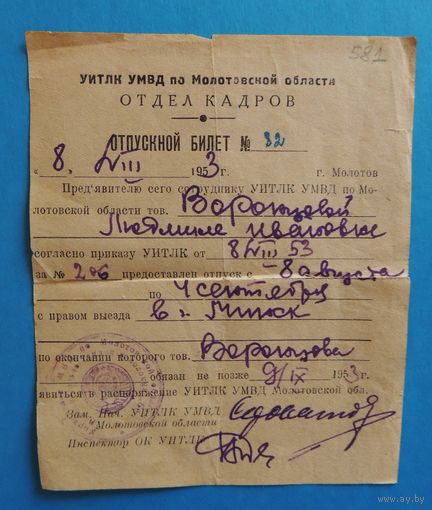 581
УИТЛК УМВД по Молотовской области
ОТДЕЛ КАДРОВ
ОТПУСКНОЙ БИЛЕТ № 32
„8. VIII 1953г. г. Молотов
Пред'явителю сего сотруднику УИТЛК УМВД по Мо-
лотовской области тов. Воронцовой
Людмиле Ивановне
согласно приказу УИТЛК от 8/VIII 53
за № 206 предоставлен отпуск с 8 августа
по 4 сентября
с правом выезда в г. Минск
по окончании которого тов. Воронцова
обязан не позже /IX 1953г.
явиться в распоряжение УИТЛК УМВД Молотовской обл.
Зам. Нач. УИТЛК УМВД
Молотовской области
Инспектор ОК УИТЛК
www.ay.by